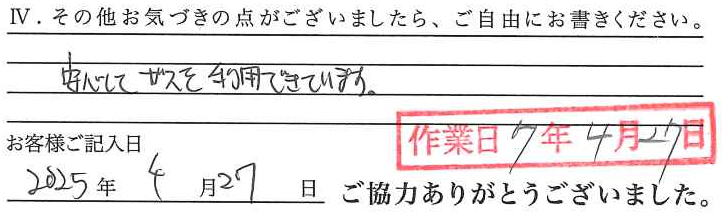 Ⅳ．その他お気づきの点がございましたら、ご自由にお書きください。
安心してガスを利用できています。
作業日 7年4月27日
お客様ご記入日
2025年 4月27日 ご協力ありがとうございました。